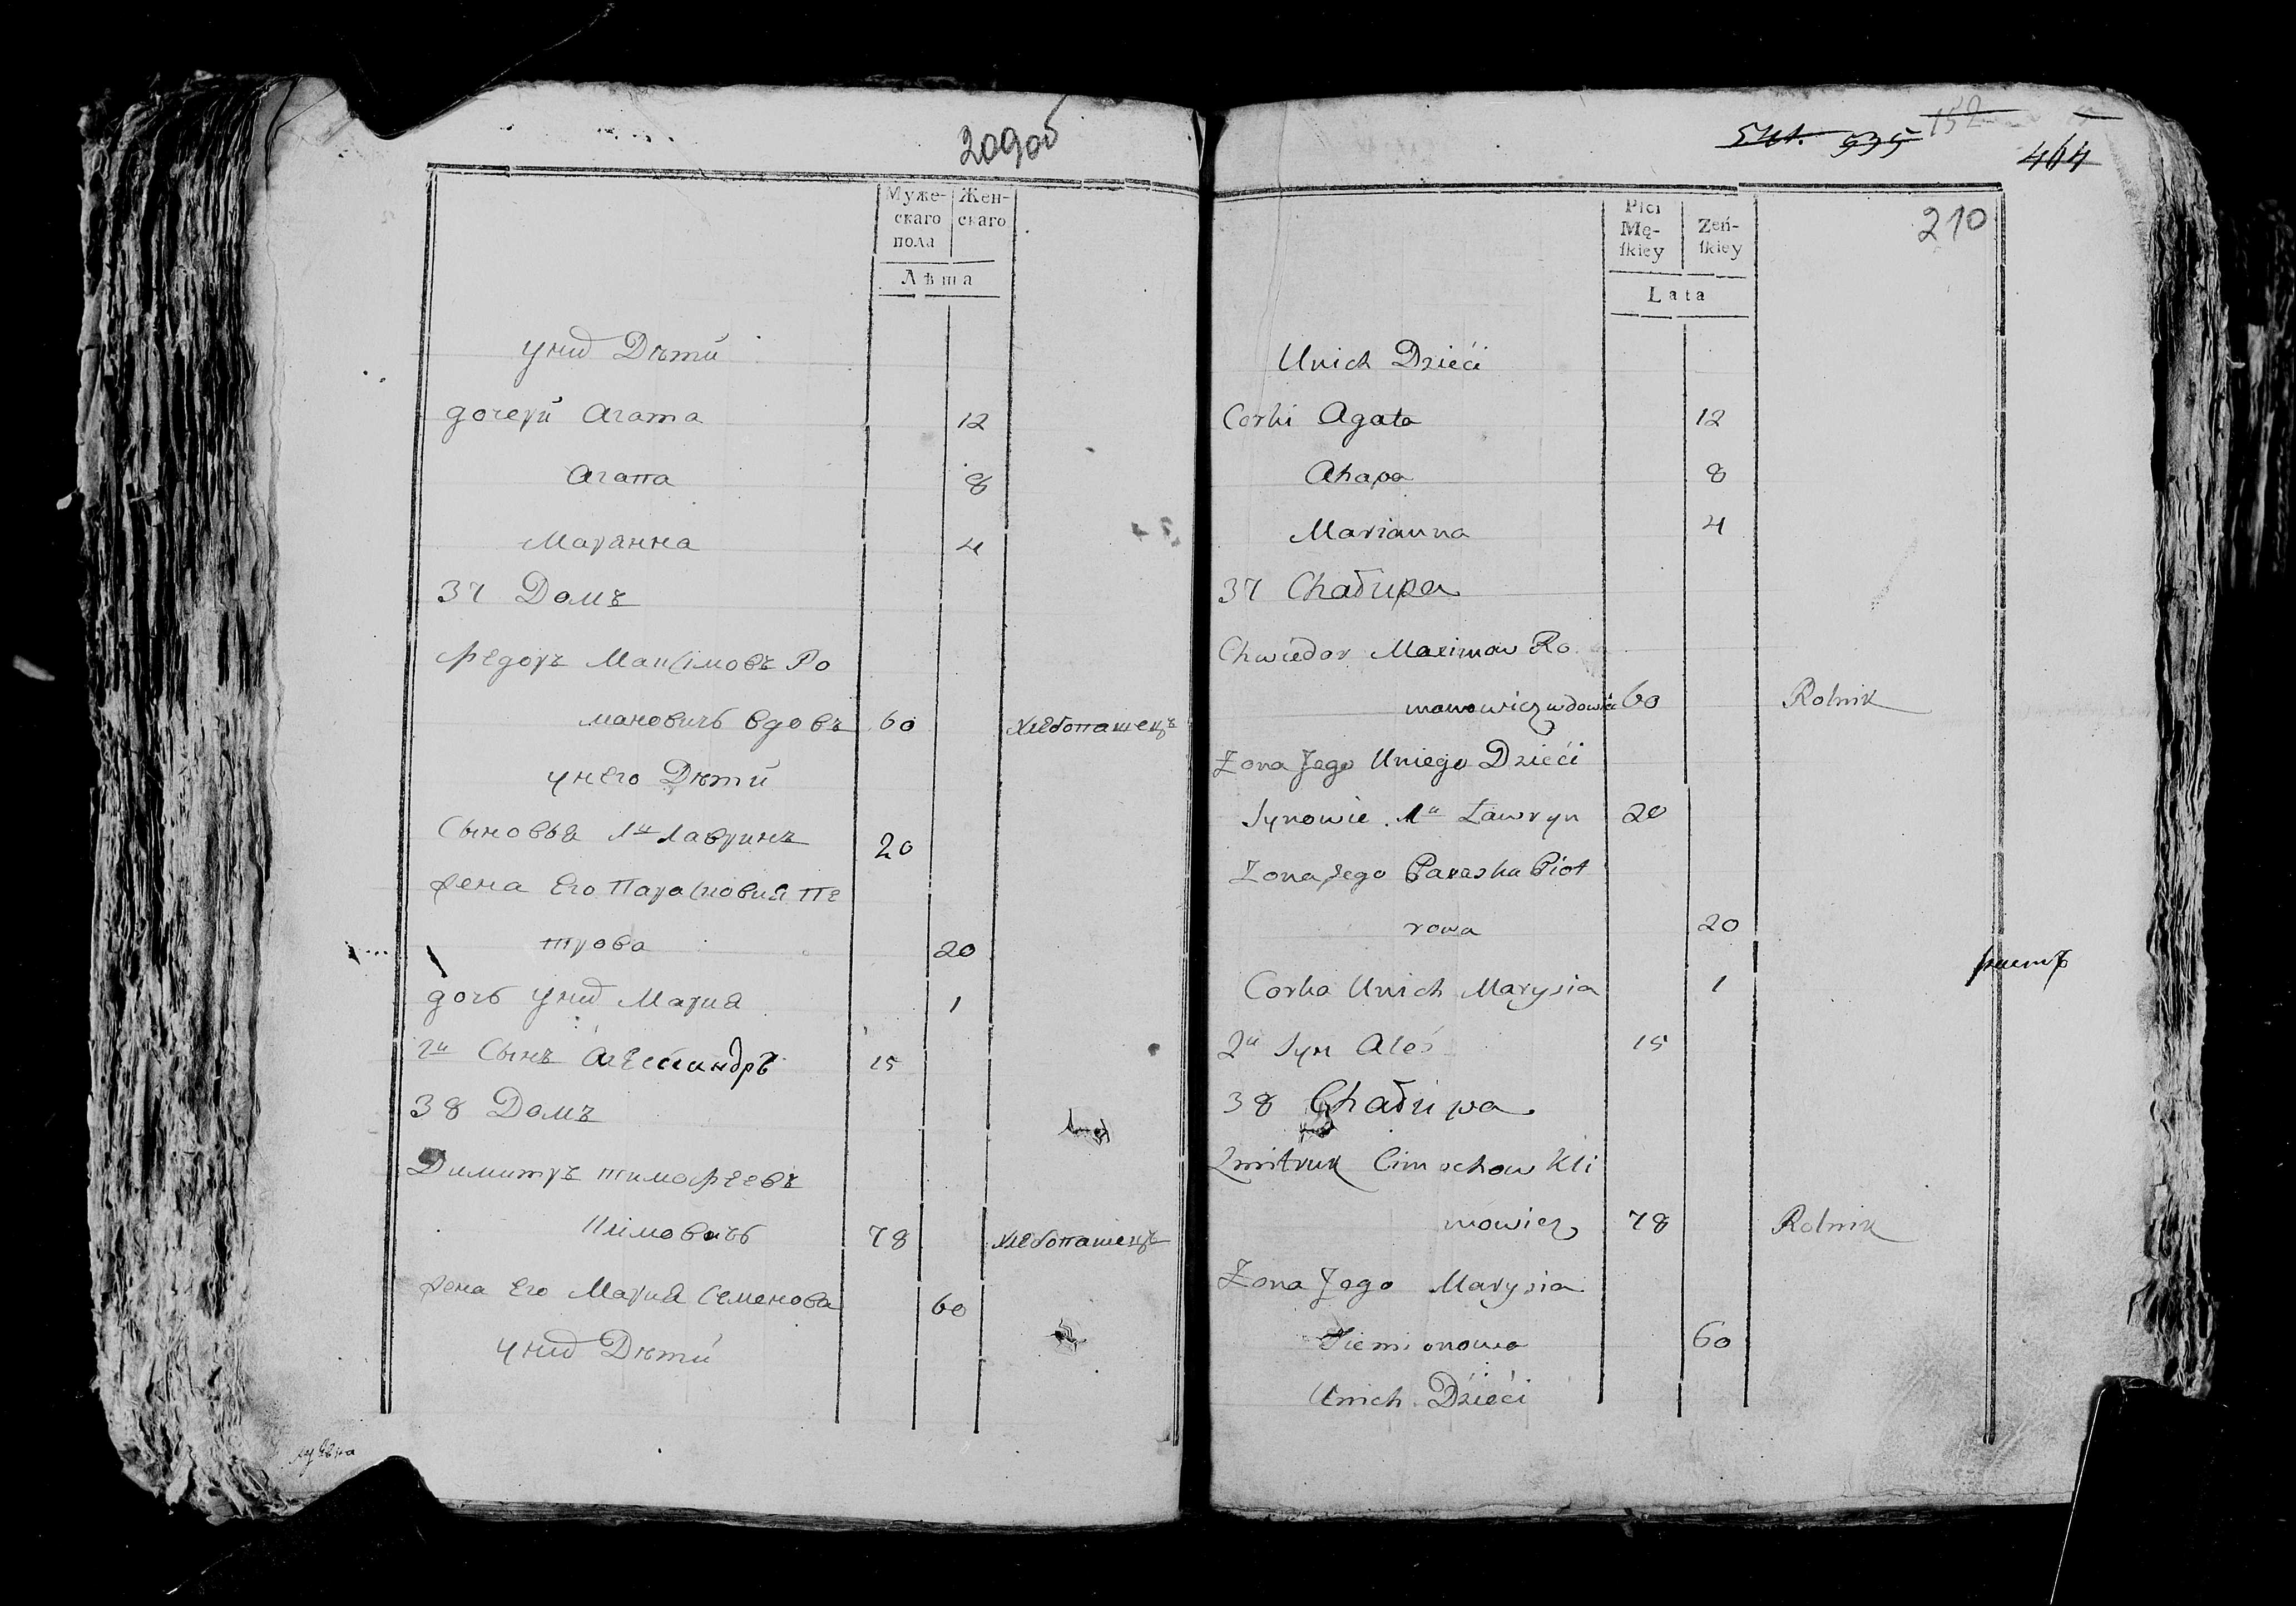 209об
Муже-
скаго
пола
Жен-
скаго
Лѣта
уних Дѣти
дочери Агата 12
Агапа 8
Марянна 4
37 Домъ
Федоръ Максімовъ Ро
мановичь вдовъ 60 хлебопашецъ
унего Дѣти
Сыновья 1й Лавринъ 20
жена Его Парасковия Пе
трова 20
дочь уних Мария 1
2й Сынъ Алессандръ 15
38 Домъ
Димитръ тимофеевъ
Климовичь 78 хлебопашецъ
жена Его Мария Семенова 60
уних Дѣти
152
535
464
210
Płci
Mę-
ſkiey
Żeń-
ſkiey
Lata
Unich Dzieći
Corki Agata 12
Ahapa 8
Marianna 4
37 Chałupa
Chwiedor Maximow Ro
manowicz wdowiec 60 Rolnik
Zona Jego Uniego Dzieći
Synowie 1й Ławryn 20
Zona Jego Paraska Piot
rowa 20
Corka Unich Marysia 1
2й Syn Aleś 15
38 Chałupa
Zmitruk Cimochow Kli
mowicz 78 Rolnik
Zona Jego Marysia
Siemionowa 60
Unich Dzieći